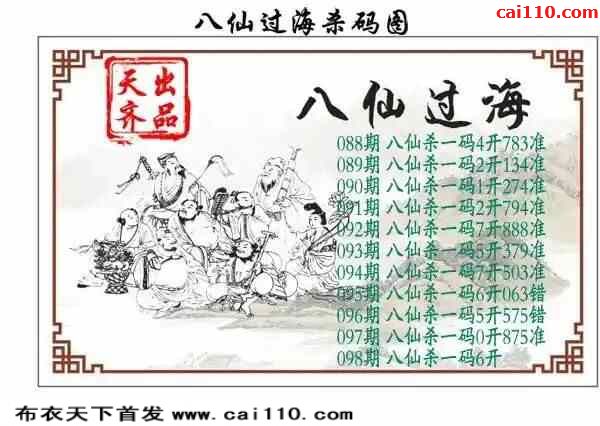 cai110.com
八仙过海杀码图
天齐出品
八仙过海
088期 八仙杀一码4开783准
089期 八仙杀一码2开134准
090期 八仙杀一码1开274准
091期 八仙杀一码2开794准
092期 八仙杀一码7开888准
093期 八仙杀一码5开379准
094期 八仙杀一码7开503准
095期 八仙杀一码6开063错
096期 八仙杀一码5开575错
097期 八仙杀一码0开875准
098期 八仙杀一码6开
布衣天下首发 www.cai110.com